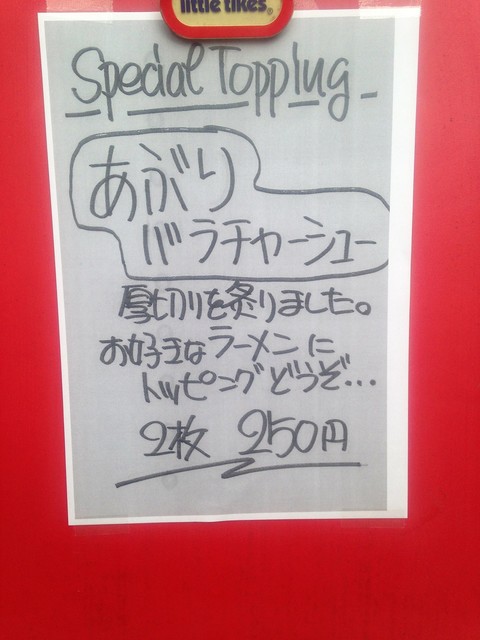 little tikes®
Special Topping
あぶり
バラチャーシュー
厚切りを炙りました。
お好きなラーメンに
トッピングどうぞ...
2枚 250円